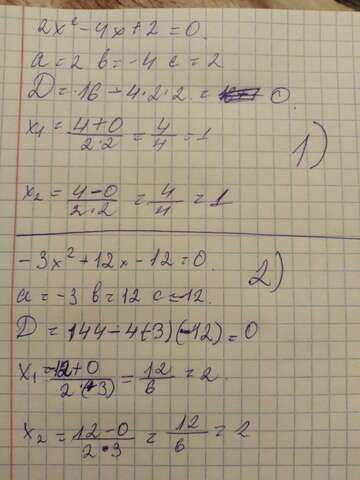 2x² - 4x + 2 = 0.
a = 2 b = -4 c = 2
D = 16 - 4·2·2 = 0
x₁ = (4+0)/(2·2) = 4/4 = 1
1)
x₂ = (4-0)/(2·2) = 4/4 = 1
-3x² + 12x - 12 = 0.
2)
a = -3 b = 12 c = -12.
D = 144 - 4(-3)(-12) = 0
x₁ = (-12+0)/(2·(-3)) = 12/6 = 2.
x₂ = (12-0)/(2·3) = 12/6 = 2